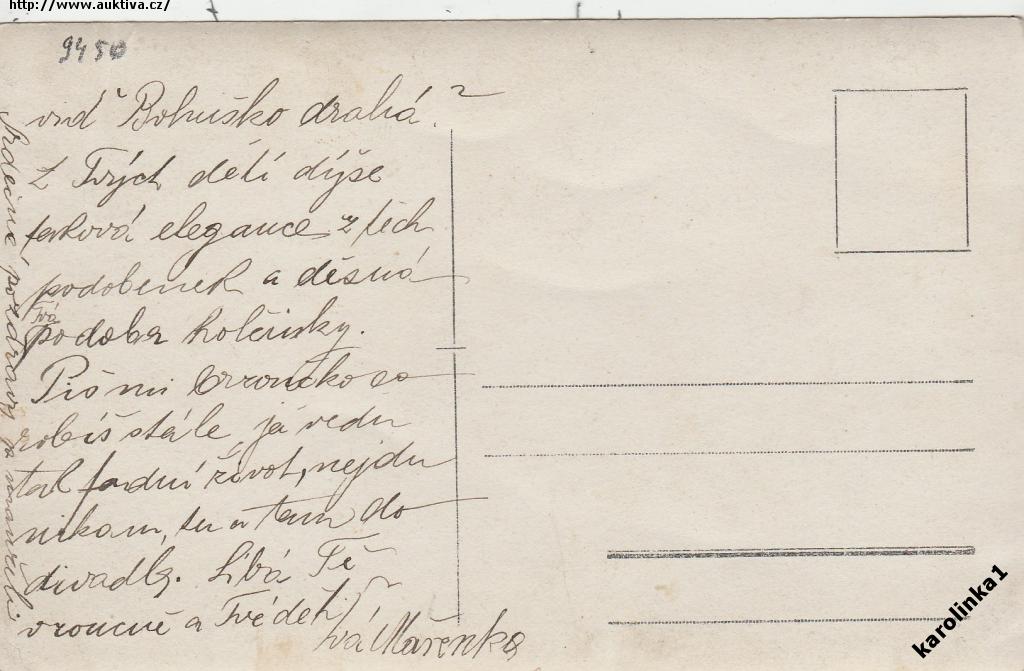 http://www.auktiva.cz/
9450
viď Bohuško drahá?
Z Tvých dětí dýše
taková elegance z těch
podobenek a děsná
Tvá
podoba holčisky.
Piš mi co
robíš stále, já vedu
tak fadní život, nejdu
nikam, tu a tam do
divadla. Líbá Tě
vroucně a Tvé děti
Tvá Mařenka
Srdečné pozdravy
karolinka1